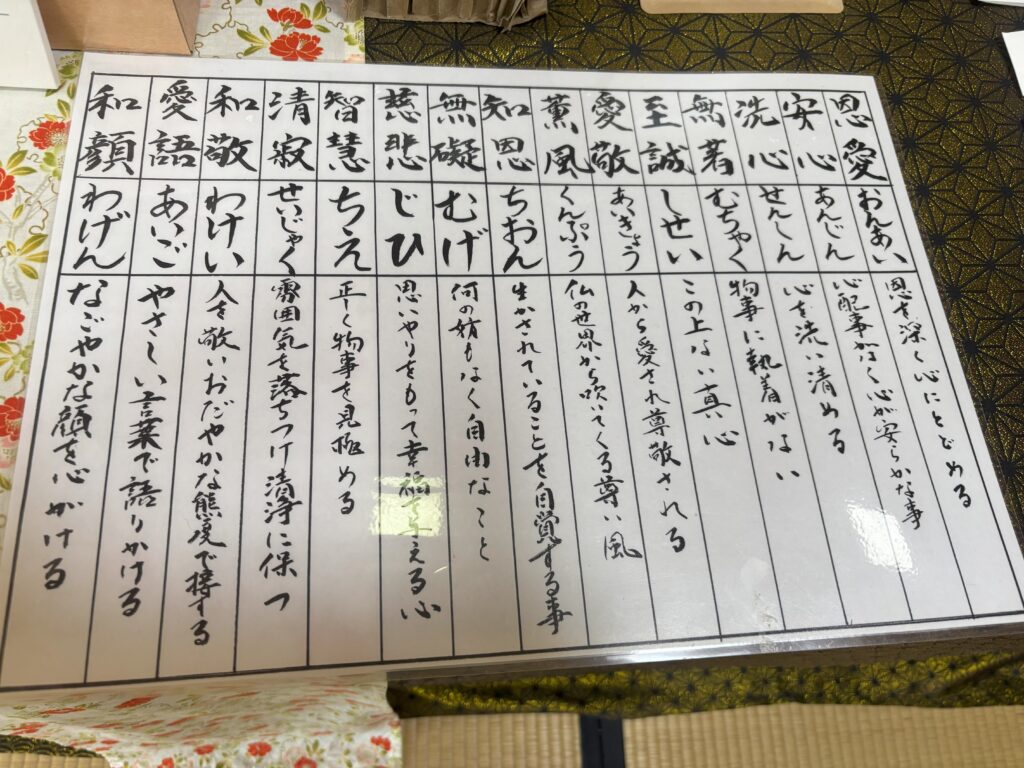 恩愛 おんあい 恩を深く心にとどめる
安心 あんじん 心配事がなく心が安らかな事
洗心 せんしん 心を洗い清める
無著 むちゃく 物事に執着がない
至誠 しせい この上ない真心
愛敬 あいきょう 人から愛され尊敬される
薫風 くんぷう 仏の世界から吹いてくる尊い風
知恩 ちおん 生かされていることを自覚する事
無礙 むげ 何の妨もなく自由なこと
慈悲 じひ 思いやりをもって幸福を与える心
智慧 ちえ 正しく物事を見極める
清寂 せいじゃく 雰囲気を落ちつけ清浄に保つ
和敬 わけい 人を敬いおだやかな態度で接する
愛語 あいご やさしい言葉で語りかける
和顔 わげん なごやかな顔を心がける